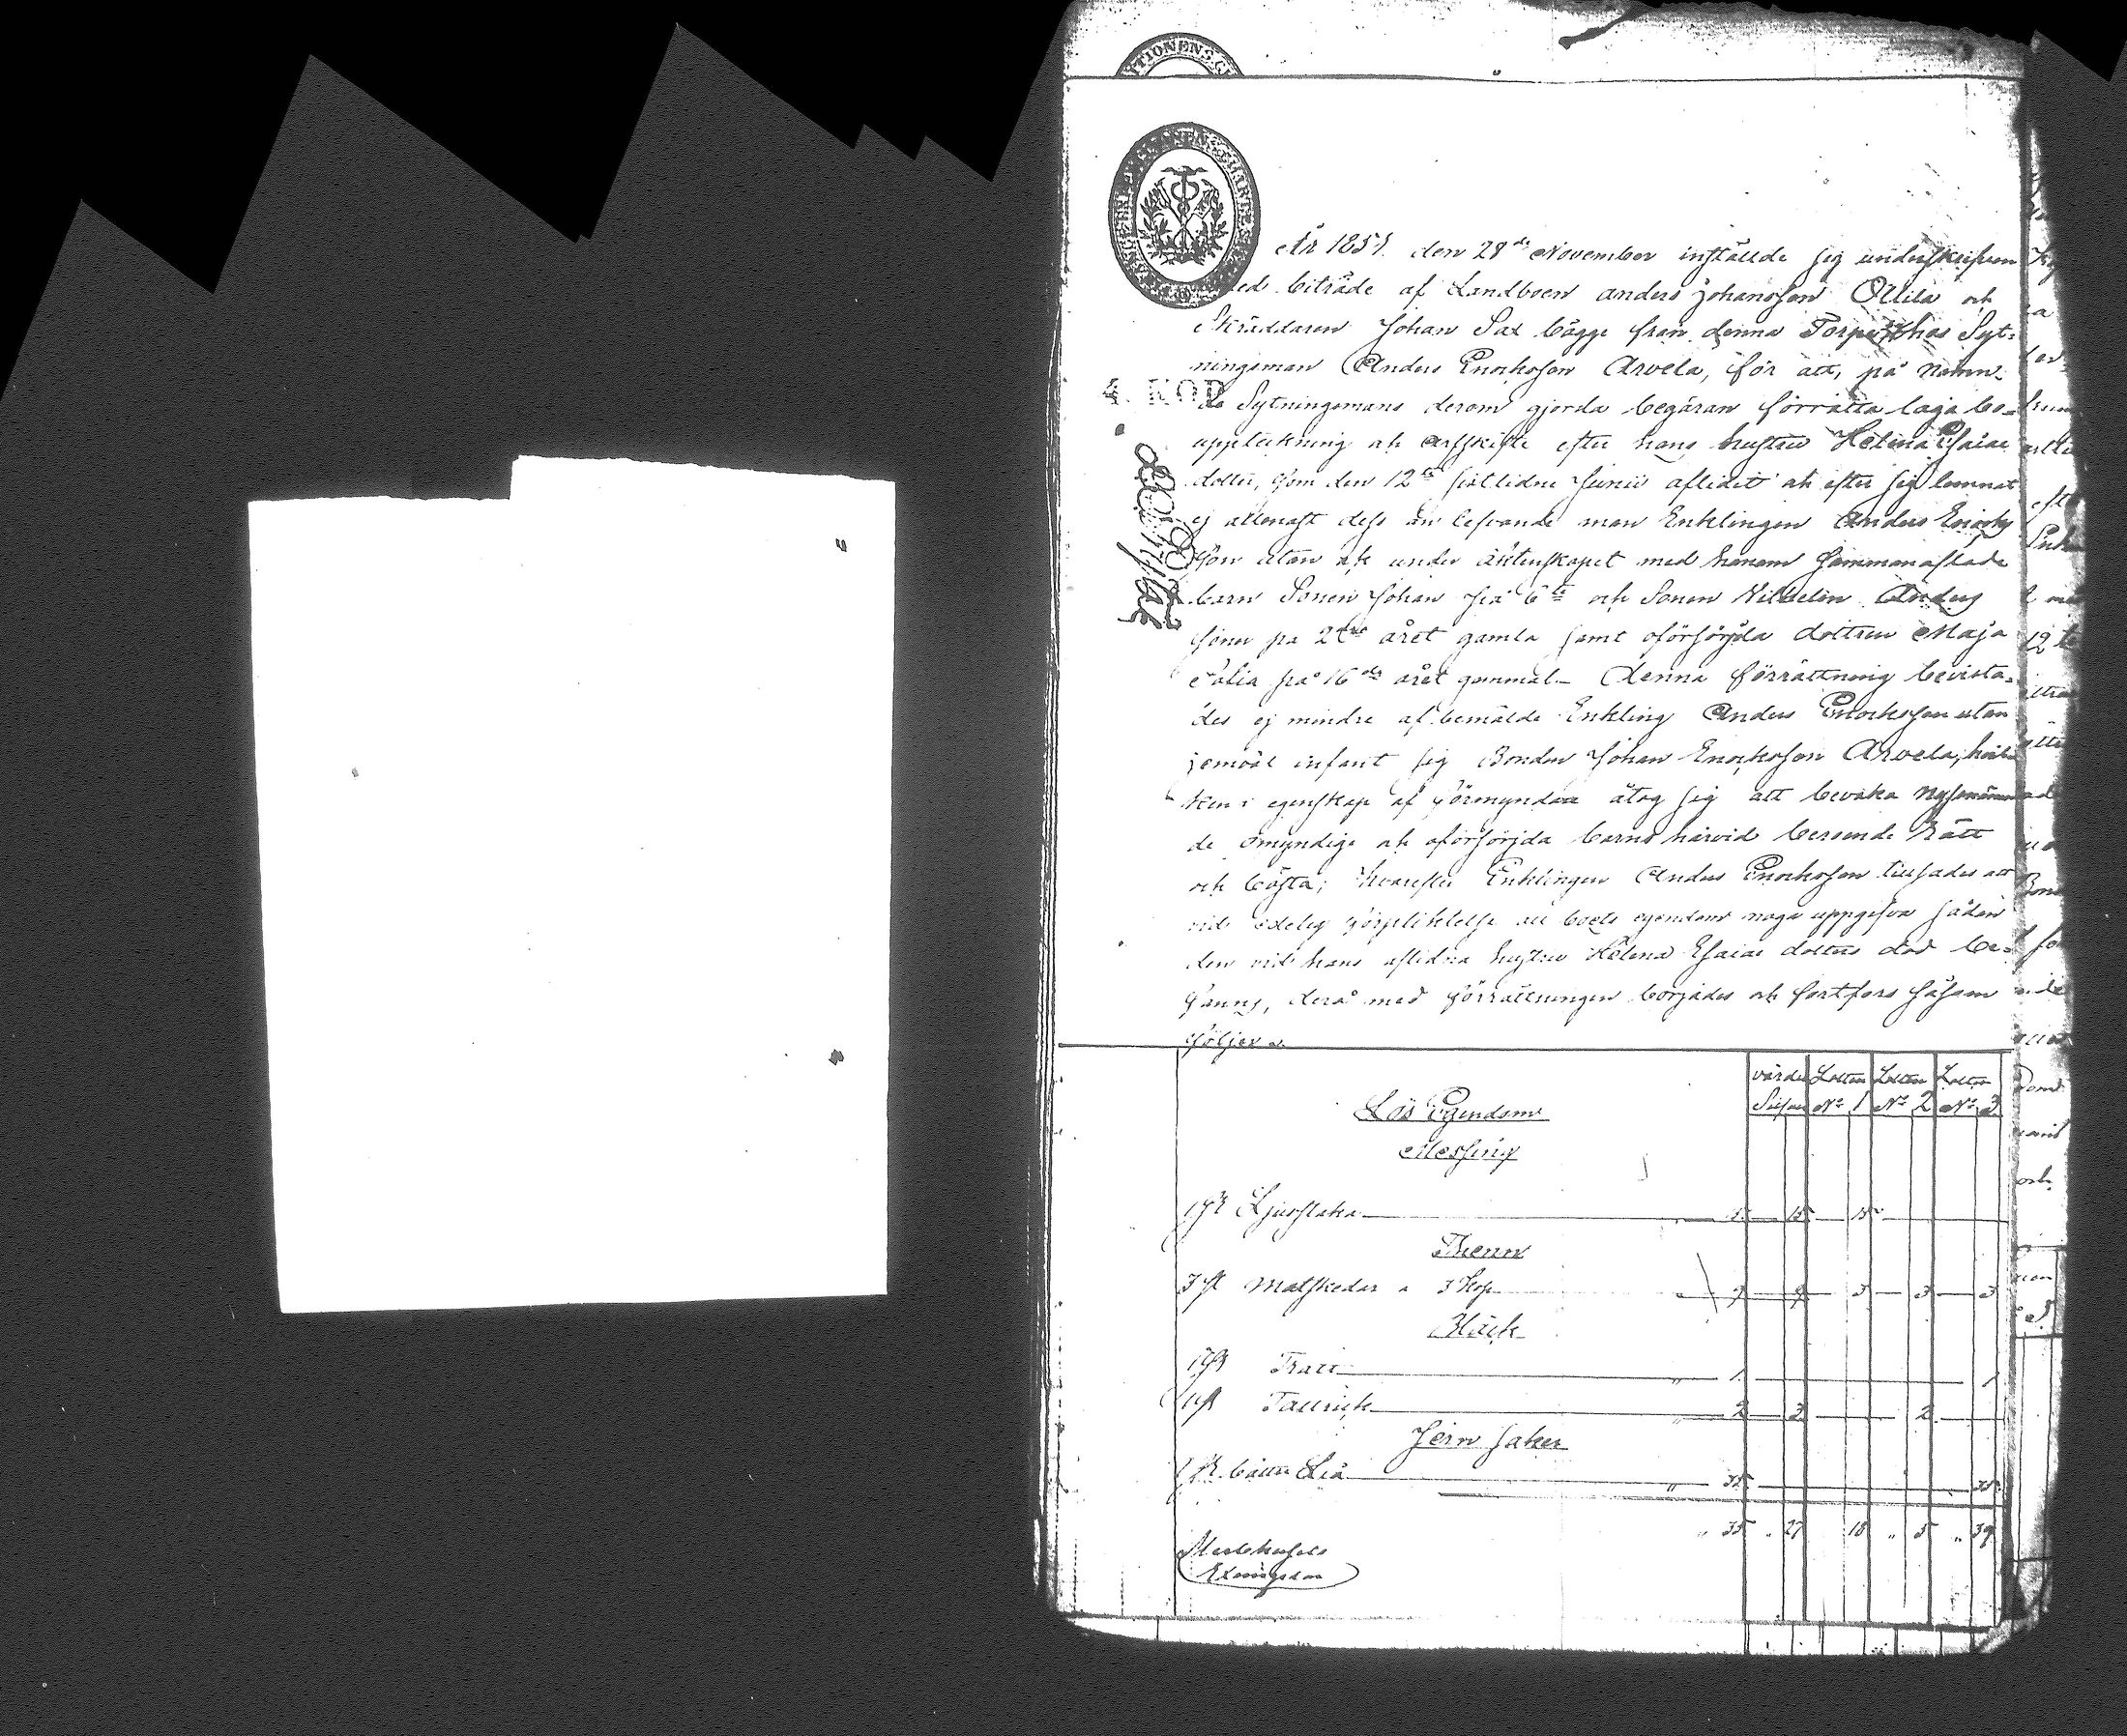 År 1857. den 28de November instälde sig underskrifven
med biträde af Landboen Anders Johansson Ollila och
Skräddaren Johan Sax bägge från denna Torp hos Syt-
ningsman Anders Enochsson Arvela, för att, på nämn-
4. KOP.
de Sytningsmans derom gjorda begäran förrätta laga bo-
uppteckning och arfskifte efter hans hustru Helena Esaiae
dotter, som den 12te sistlidne Junii aflidit och efter sig lemnat
ej allenast dess än lefvande man Enklingen Anders Enochs
son utan och under äktenskapet med honom sammanaflade
barn Sonen Johan på 6te och Sonen Vilhelm Anders
söner på 2dra året gamla samt oförsörjda dottren Maja
Sofia på 16de året gammal. Denna förrättning bevista-
des ej mindre af bemälde Enkling Anders Enochsson utan
jemväl infant sig Bonden Johan Enochsson Arvela, hvil-
ken i egenskap af Förmyndare åtog sig att bevaka nyssnämn
de omyndige och oförsörjda barns härvid beroende rätt
och bästa; hvarefter Enklingen Anders Enochsson tillsades att
vid edelig förpliktelse all boets egendom noga uppgifva sådan
den vid hans aflidna hustru Helena Esaiae dotters död be-
fanns, derå med förrättningen börjades och fortfors såsom
följer:
värde Lotten Lotten Lotten
Silfver No 1 No 2 No 3
Lös Egendom
Messing
1 st Ljusstaka 15 15
Thenn
3 st Matskedar a 3 kop 9 9 3 3 3
Bläck
1 st Tratt 1 1
1 st Tallrick 2 2 2
Jern saker
1 st bättre Lia 35 35
35 27 18 5 39